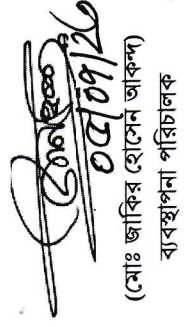 ০৫/০৭/২৫
(মোঃ জাকির হোসেন আকন্দ)
ব্যবস্থাপনা পরিচালক